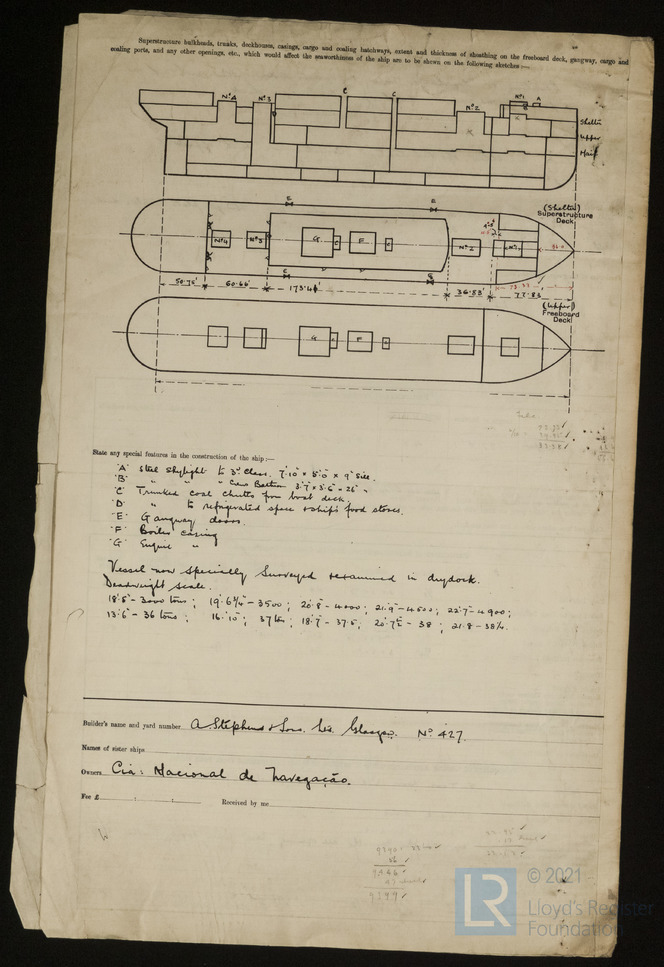 Superstructure bulkheads, trunks, deckhouses, casings, cargo and coaling hatchways, extent and thickness of sheathing on the freeboard deck, gangway, cargo and
coaling ports, and any other openings, etc., which would affect the seaworthiness of the ship are to be shown on the following sketches:—
Nº4 Nº3 C C Nº2 Nº1 A
Shelter
Upper
Main
E E
(Shelter)
Superstructure
Deck
Nº4 Nº3 G C F C Nº2 Nº1
E
50.75' 60.66' 36.53' 72.83
(Upper)
Freeboard
Deck
G C F
State any special features in the construction of the ship:—
"A" Steel Skylight to 3rd Class. 7'.10" x 5'.0" x 9" Sill.
"B" " " " Crew
"C" Trunked coal chutes from boat deck.
"D" " to refrigerated space & ship's food stores.
"E" Gangway doors.
"F" Boiler casing
"G" Engine "
Vessel now specially Surveyed & examined in drydock.
Deadweight scale.
18'.5" - 3000 tons; 19'.6¾" - 3500; 20'.8 - 4000; 21'.9" - 4500; 22'.7" - 4900;
13'.6" - 36 tons; 16'.10"; 37 tons; 18'.7" - 37.5; 20'.7½" - 38; 21.8 - 38¼.
Builder's name and yard number A. Stephens & Sons. Ld. Glasgow. Nº 427.
Names of sister ships
Owners Cia: Nacional de Navegação.
Fee £ : : Received by me
LR © 2021
Lloyd's Register
Foundation